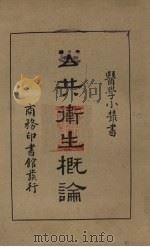 醫學小叢書
公共衛生概論
商務印書館發行